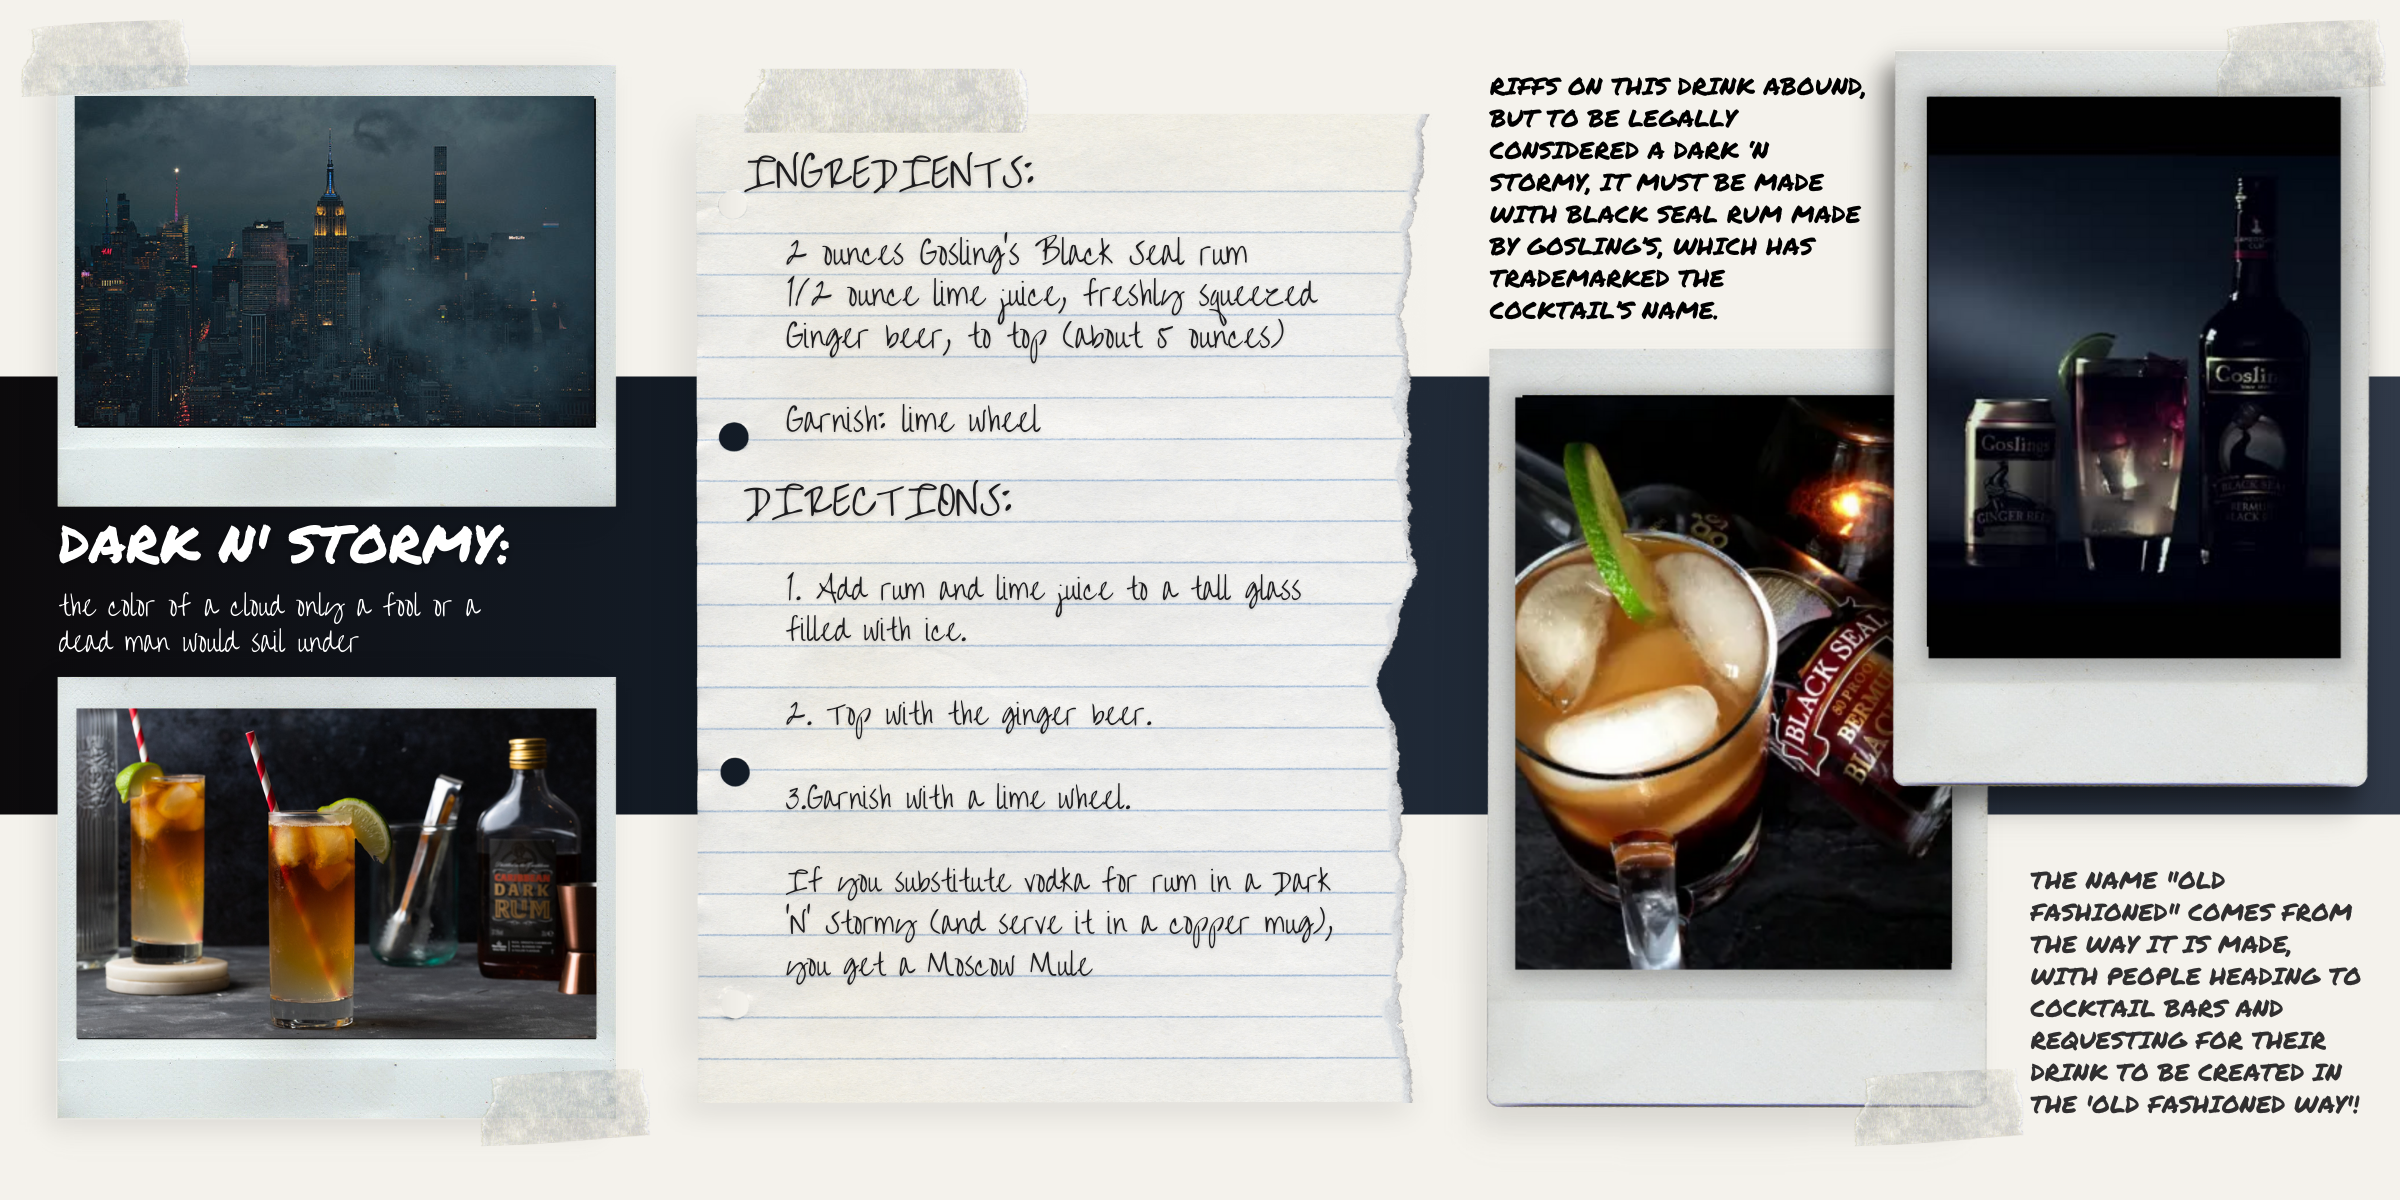 DARK N' STORMY:
the color of a cloud only a fool or a
dead man would sail under
CARIBBEAN
DARK
RUM
INGREDIENTS:
2 ounces Gosling's Black Seal rum
1/2 ounce lime juice, freshly squeezed
Ginger beer, to top (about 5 ounces)
Garnish: lime wheel
DIRECTIONS:
1. Add rum and lime juice to a tall glass
filled with ice.
2. Top with the ginger beer.
3.Garnish with a lime wheel.
If you substitute vodka for rum in a Dark
'N' Stormy (and serve it in a copper mug),
you get a Moscow Mule
RIFFS ON THIS DRINK ABOUND,
BUT TO BE LEGALLY
CONSIDERED A DARK 'N
STORMY, IT MUST BE MADE
WITH BLACK SEAL RUM MADE
BY GOSLING'S, WHICH HAS
TRADEMARKED THE
COCKTAIL'S NAME.
BLACK SEAL
80 PROOF
BERMU
BLAC
Goslings
GINGER BEE
Goslin
BLACK SEA
BERMUD
BLACK R
THE NAME "OLD
FASHIONED" COMES FROM
THE WAY IT IS MADE,
WITH PEOPLE HEADING TO
COCKTAIL BARS AND
REQUESTING FOR THEIR
DRINK TO BE CREATED IN
THE 'OLD FASHIONED WAY'!